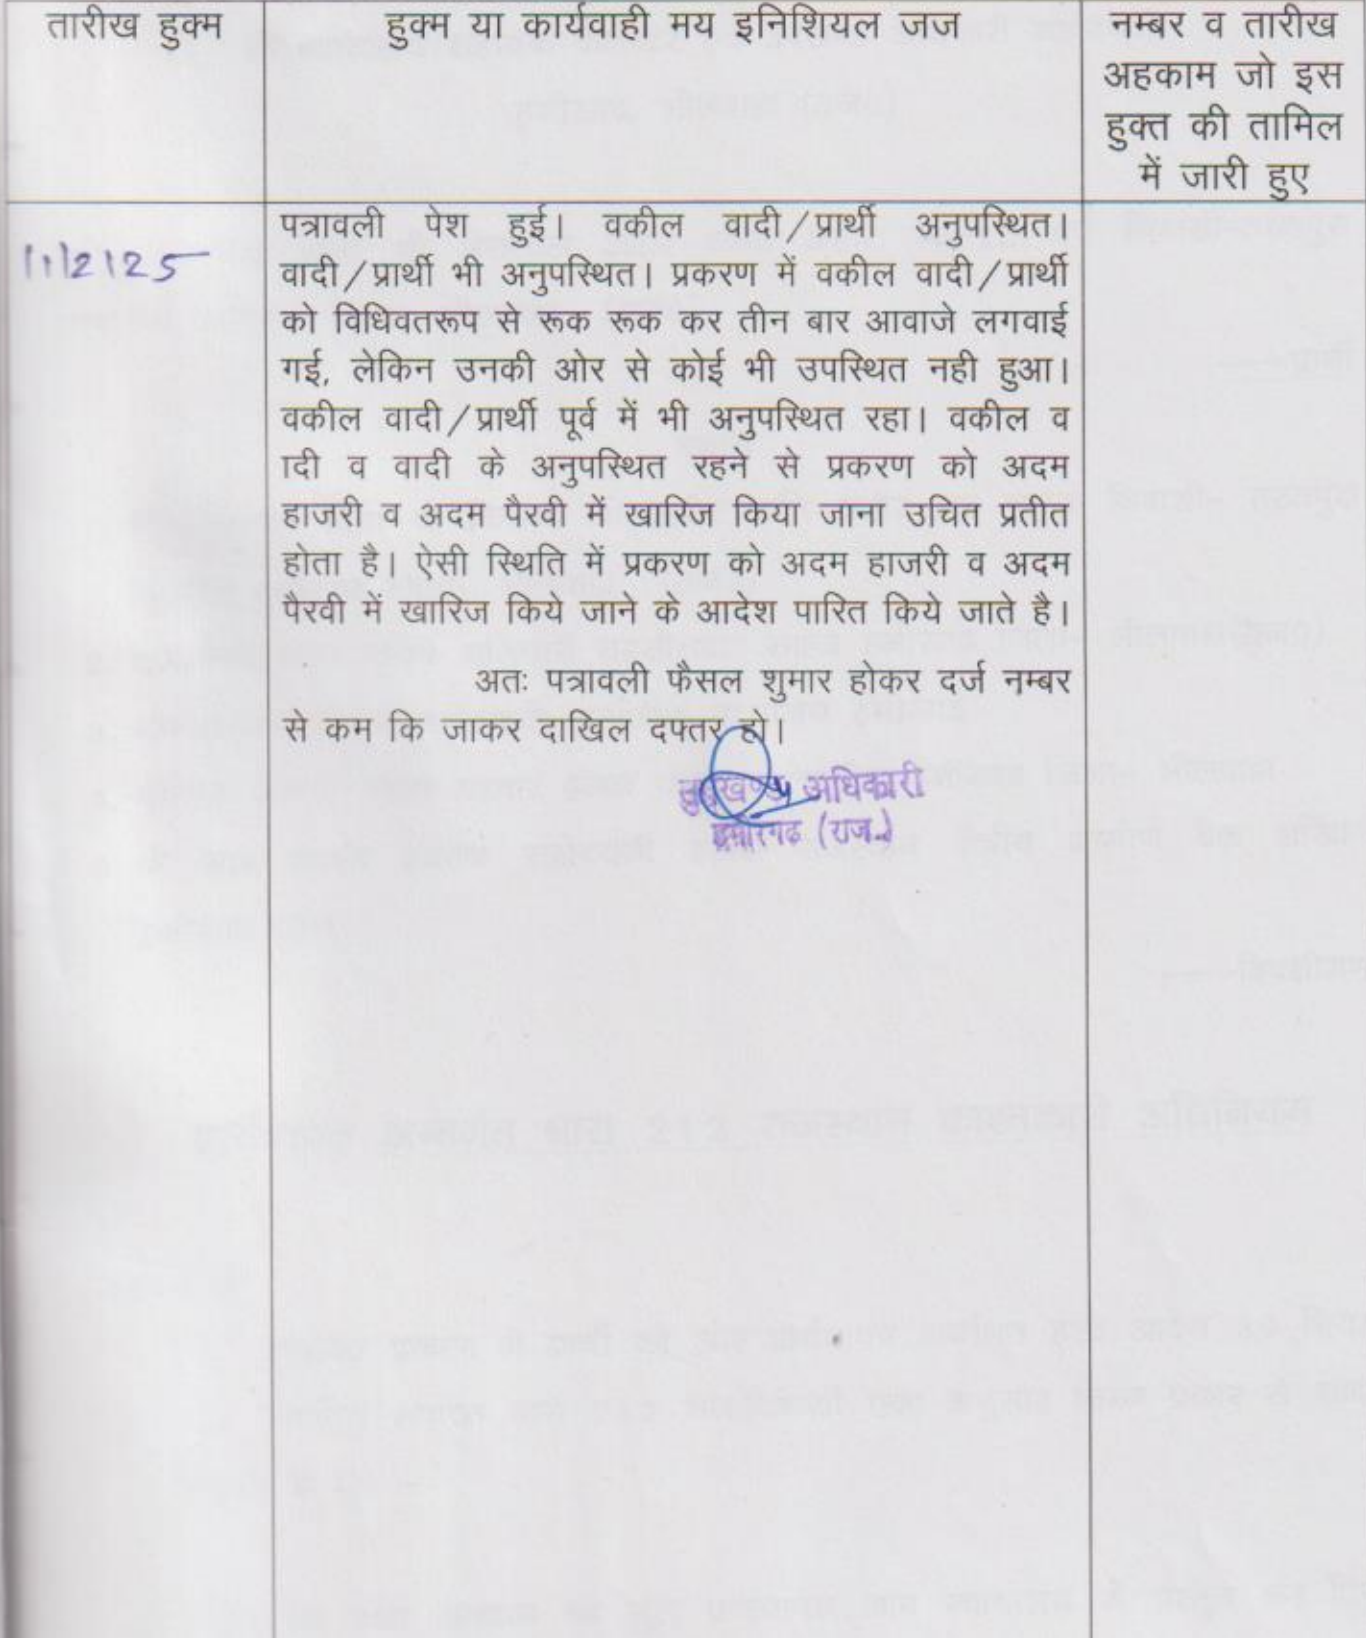 तारीख हुक्म
हुक्म या कार्यवाही मय इनिशियल जज
नम्बर व तारीख
अहकाम जो इस
हुक्त की तामिल
में जारी हुए
11/2/25
पत्रावली पेश हुई। वकील वादी/प्रार्थी अनुपस्थित।
वादी/प्रार्थी भी अनुपस्थित। प्रकरण में वकील वादी/प्रार्थी
को विधिवतरूप से रूक रूक कर तीन बार आवाजे लगवाई
गई, लेकिन उनकी ओर से कोई भी उपस्थित नही हुआ।
वकील वादी/प्रार्थी पूर्व में भी अनुपस्थित रहा। वकील व
ादी व वादी के अनुपस्थित रहने से प्रकरण को अदम
हाजरी व अदम पैरवी में खारिज किया जाना उचित प्रतीत
होता है। ऐसी स्थिति में प्रकरण को अदम हाजरी व अदम
पैरवी में खारिज किये जाने के आदेश पारित किये जाते है।
अतः पत्रावली फैसल शुमार होकर दर्ज नम्बर
से कम कि जाकर दाखिल दफ्तर हो।
अधिकारी
(राज.)